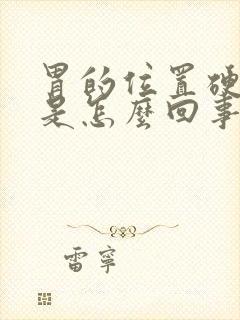 胃的位置硬
是怎麼回事
雷寧